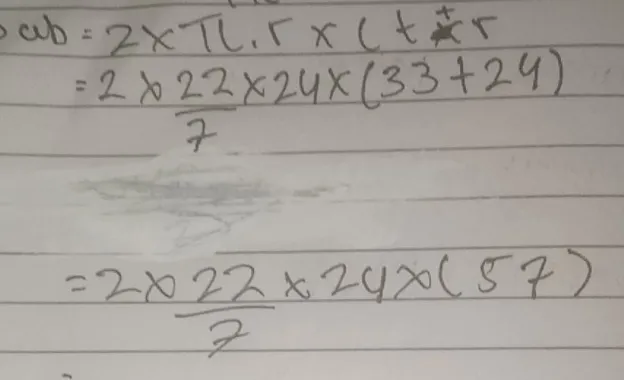 Jawab = 2 × π . r × ( t + r
= 2 × 22/7 × 24 × (33 + 24)
= 2 × 22/7 × 24 × (57)